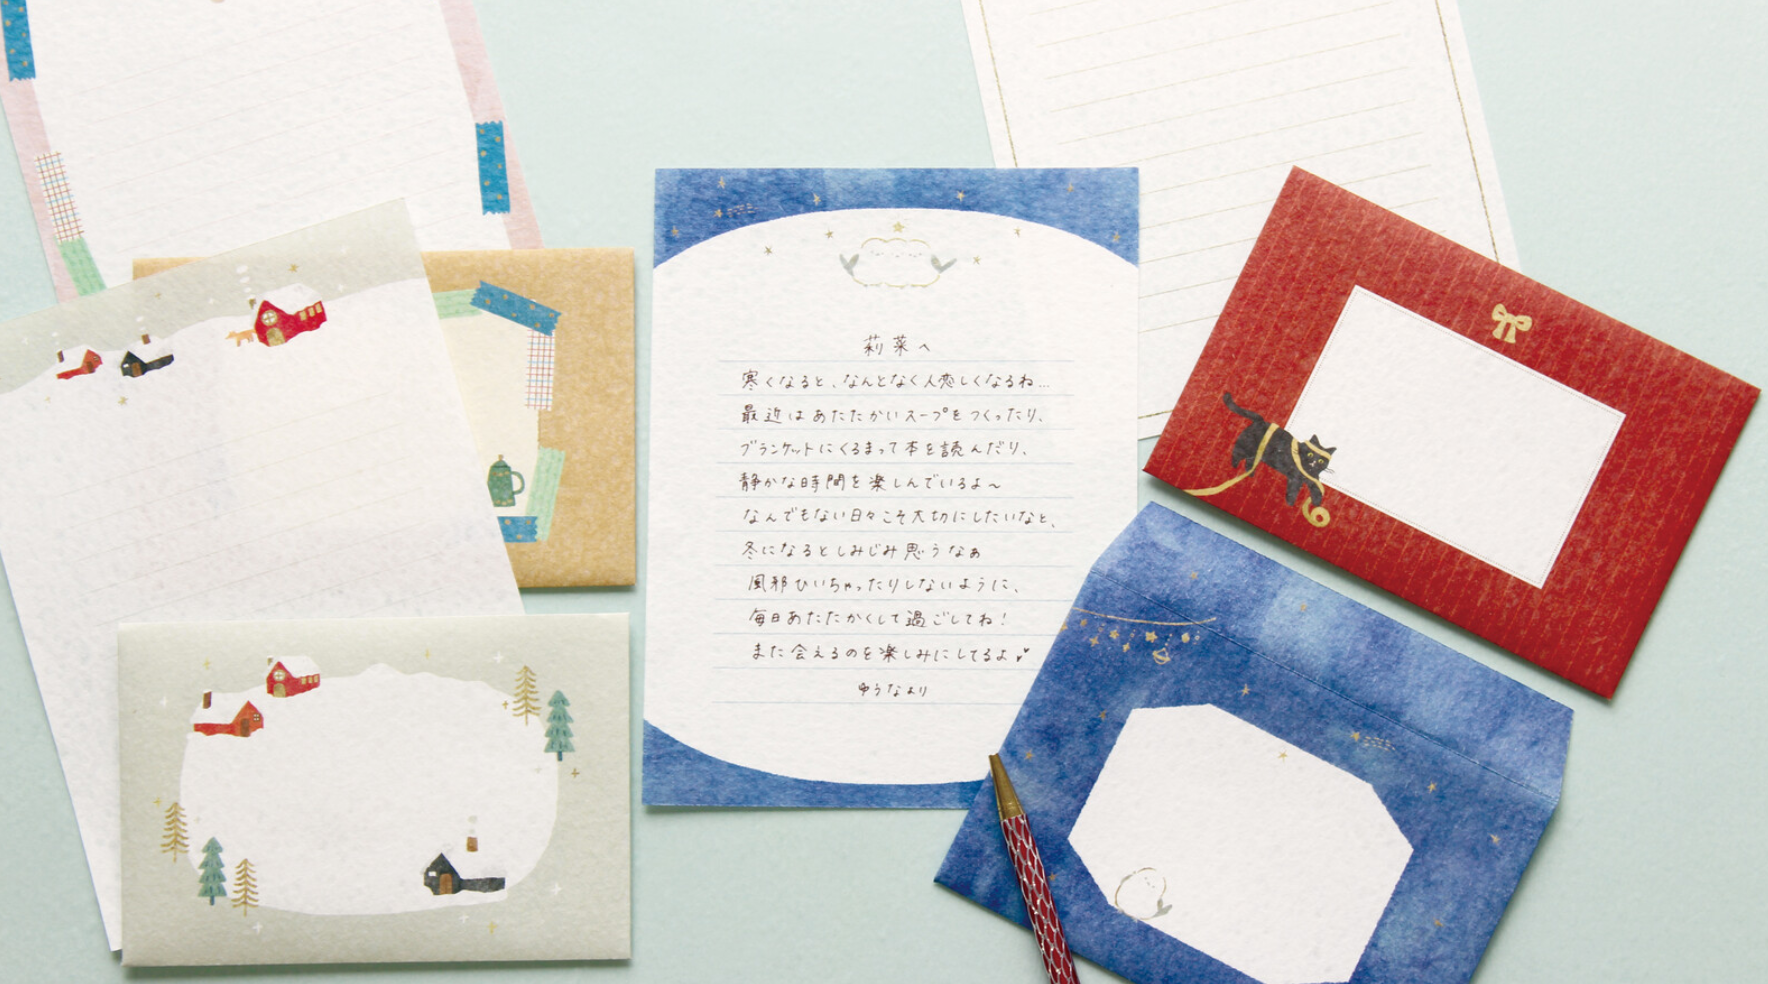 莉菜へ
寒くなると、なんとなく人恋しくなるね…
最近はあたたかいスープをつくったり、
ブランケットにくるまって本を読んだり、
静かな時間を楽しんでいるよ〜
なんでもない日々こそ大切にしたいなと、
冬になるとしみじみ思うなぁ
風邪ひいちゃったりしないように、
毎日あたたかくして過ごしてね！
また会えるのを楽しみにしてるよ♥
ゆうなより